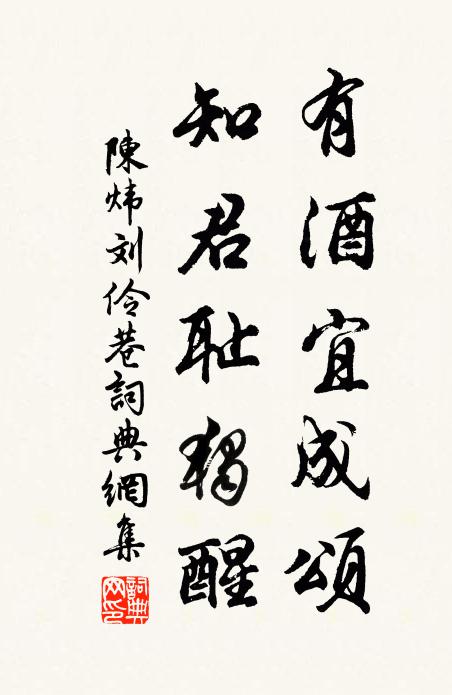 有酒宜成頌
知君耻獨醒
陳炜刘伶巷詞典網集
詞典网印